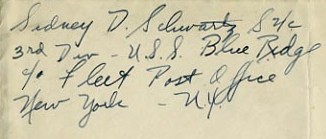 Sidney D. Schwartz S 2/c
3rd Div - U.S.S. Blue Ridge
c/o Fleet Post Office
New York - N.Y.